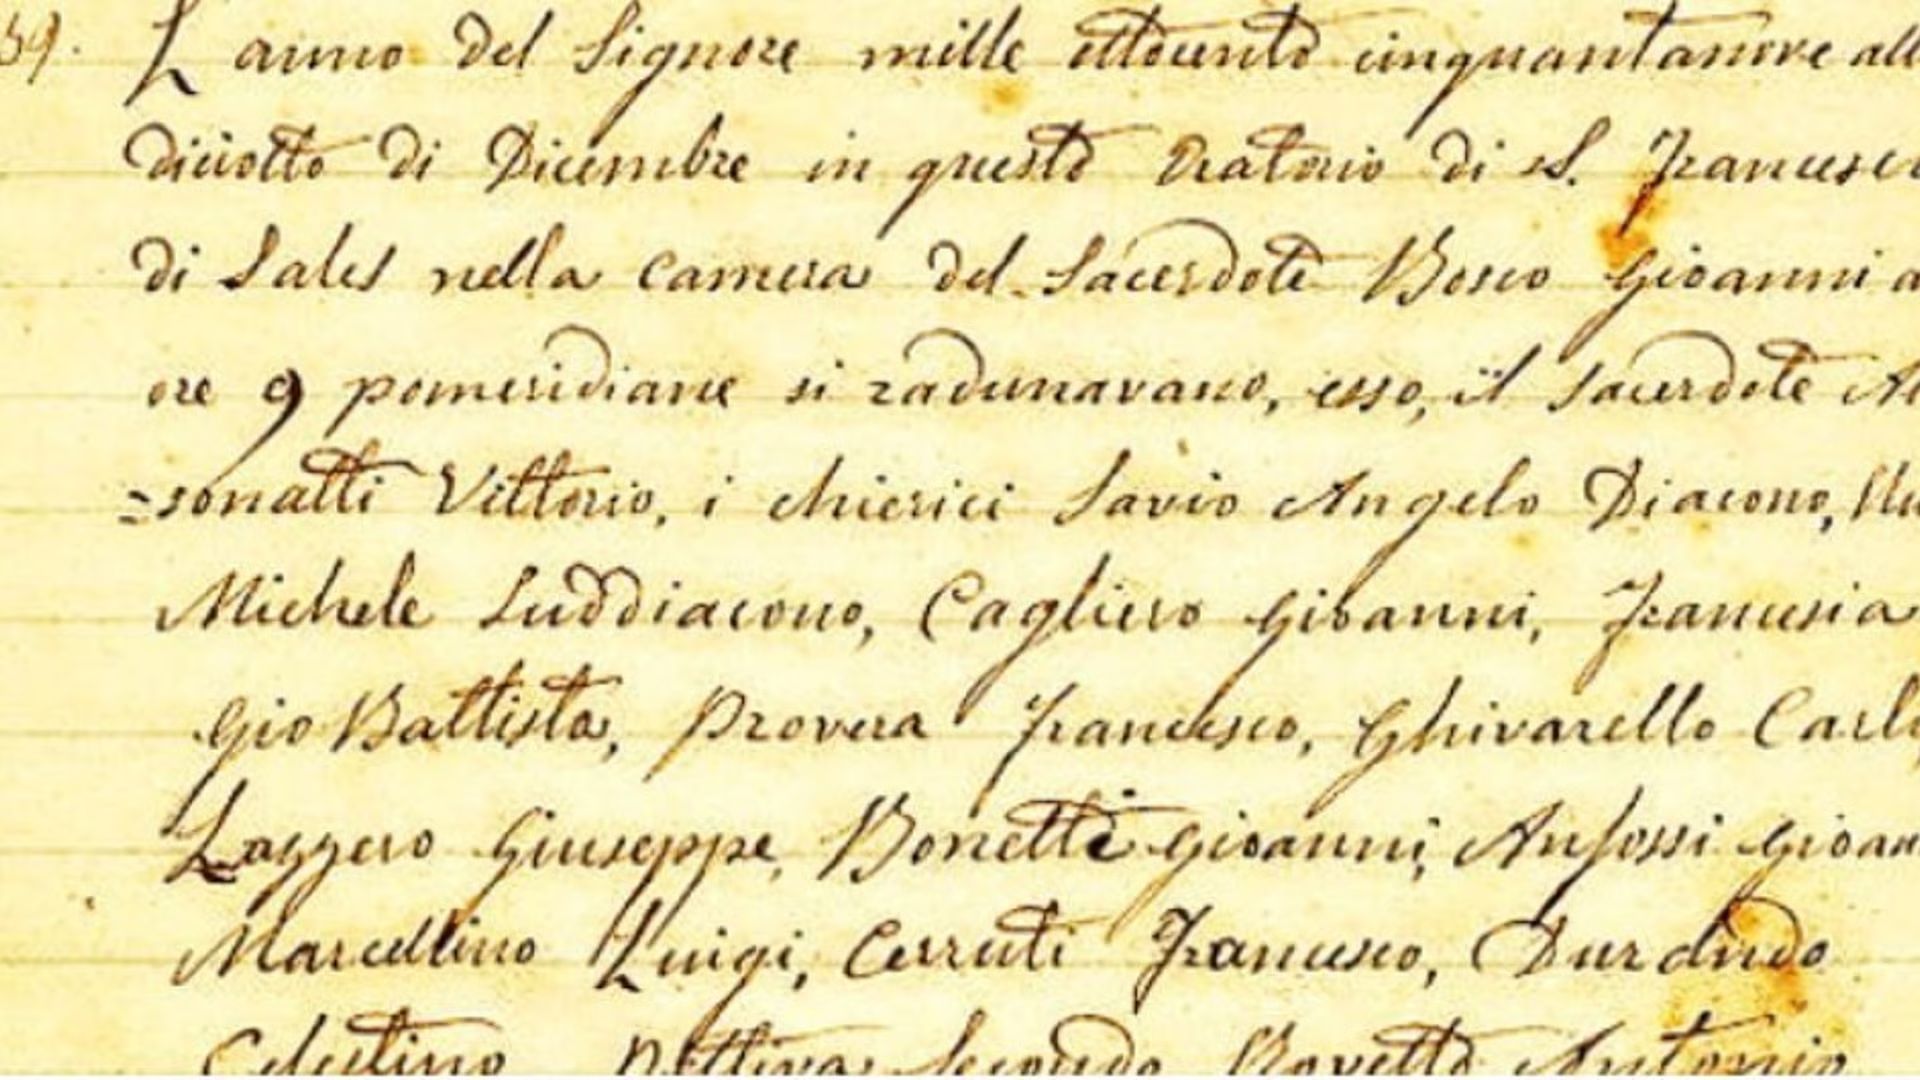 59. L anno del Signore mille ottocento cinquantanove all
diciotto di Dicembre in questo Oratorio di S. Francesco
di Sales nella camera del Sacerdote Bosco Gioanni a
ore 9 pomeridiane si radunavano, esso, il Sacerdote A
=sonatti Vittorio, i chierici Savio Angelo Diacono,
Michele Suddiacono, Cagliero Gioanni, Francesia
Gio Battista, Provera Francesco, Ghivarello Carlo
Lazzero Giuseppe, Bonetti Gioanni, Anfossi Gioan
Marcellino Luigi, Cerruti Francesco, Durando
Celestino Pettiva Secondo Rovetto Antonio